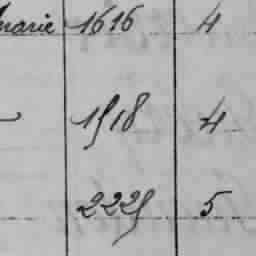 marie 1616 4
1518 4
2225 5